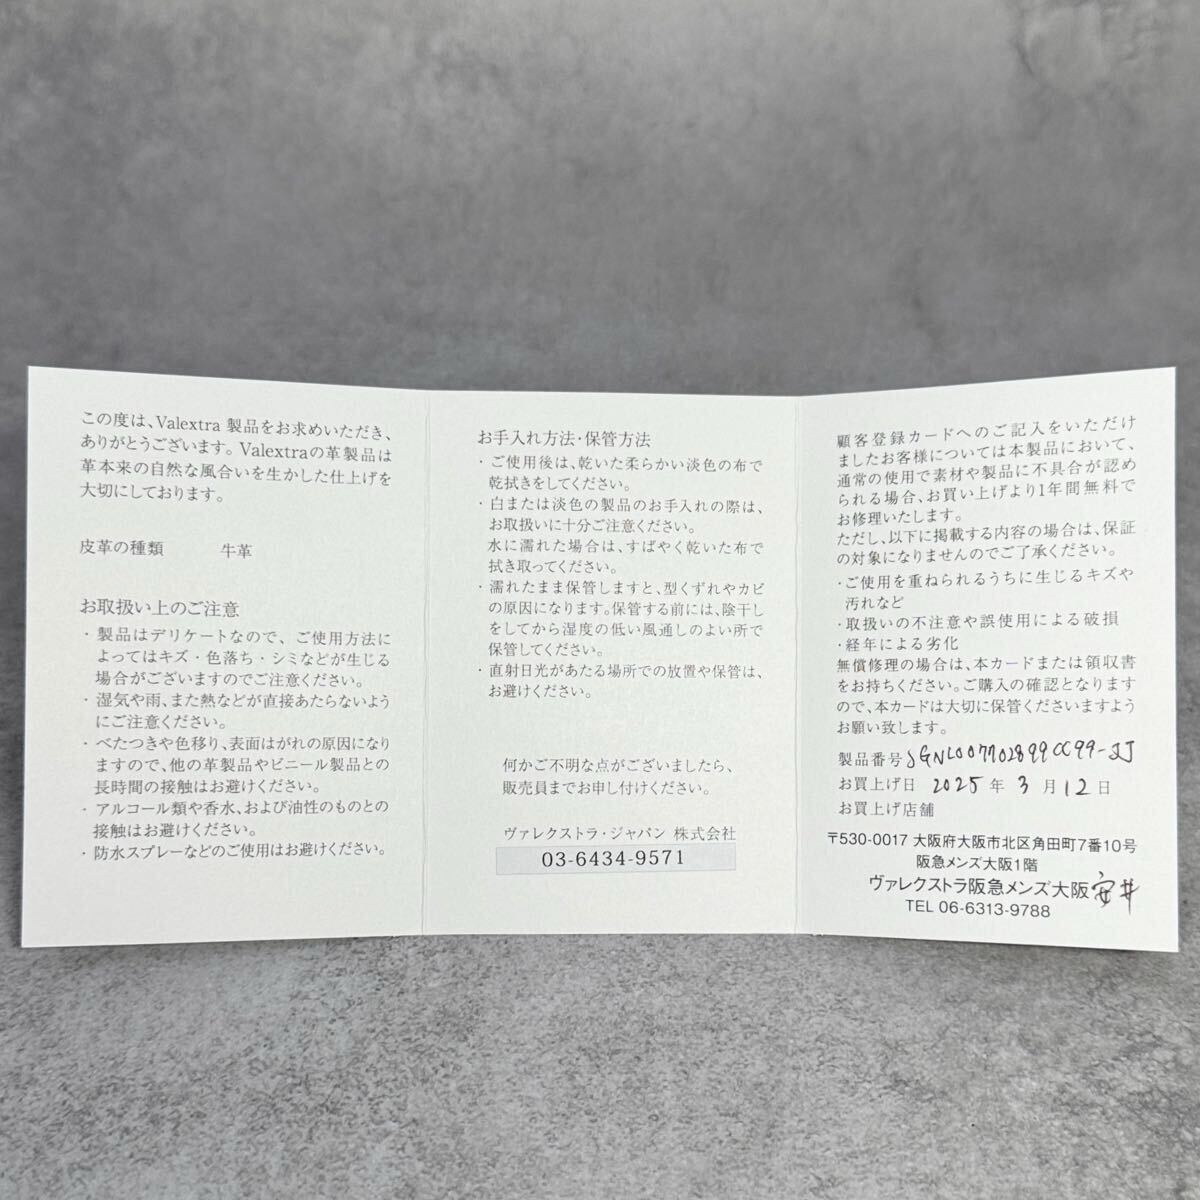 この度は、Valextra 製品をお求めいただき、
ありがとうございます。Valextraの革製品は
革本来の自然な風合いを生かした仕上げを
大切にしております。
皮革の種類 牛革
お取扱い上のご注意
・製品はデリケートなので、ご使用方法に
よってはキズ・色落ち・シミなどが生じる
場合がございますのでご注意ください。
・湿気や雨、また熱などが直接あたらないよう
にご注意ください。
・べたつきや色移り、表面はがれの原因になり
ますので、他の革製品やビニール製品との
長時間の接触はお避けください。
・アルコール類や香水、および油性のものとの
接触はお避けください。
・防水スプレーなどのご使用はお避けください。
お手入れ方法・保管方法
・ご使用後は、乾いた柔らかい淡色の布で
乾拭きをしてください。
・白または淡色の製品のお手入れの際は、
お取扱いに十分ご注意ください。
水に濡れた場合は、すばやく乾いた布で
拭き取ってください。
・濡れたまま保管しますと、型くずれやカビ
の原因になります。保管する前には、陰干し
をしてから湿度の低い風通しのよい所で
保管してください。
・直射日光があたる場所での放置や保管は、
お避けください。
何かご不明な点がございましたら、
販売員までお申し付けください。
ヴァレクストラ・ジャパン 株式会社
03-6434-9571
顧客登録カードへのご記入をいただけ
ましたお客様については本製品において、
通常の使用で素材や製品に不具合が認め
られる場合、お買い上げより1年間無料で
お修理いたします。
ただし、以下に掲載する内容の場合は、保証
の対象になりませんのでご了承ください。
・ご使用を重ねられるうちに生じるキズや
汚れなど
・取扱いの不注意や誤使用による破損
・経年による劣化
無償修理の場合は、本カードまたは領収書
をお持ちください。ご購入の確認となります
ので、本カードは大切に保管くださいますよう
お願い致します。
製品番号
お買上げ日 2025 年 3 月 12 日
お買上げ店舗
〒530-0017 大阪府大阪市北区角田町7番10号
阪急メンズ大阪1階
ヴァレクストラ阪急メンズ大阪 安井
TEL 06-6313-9788